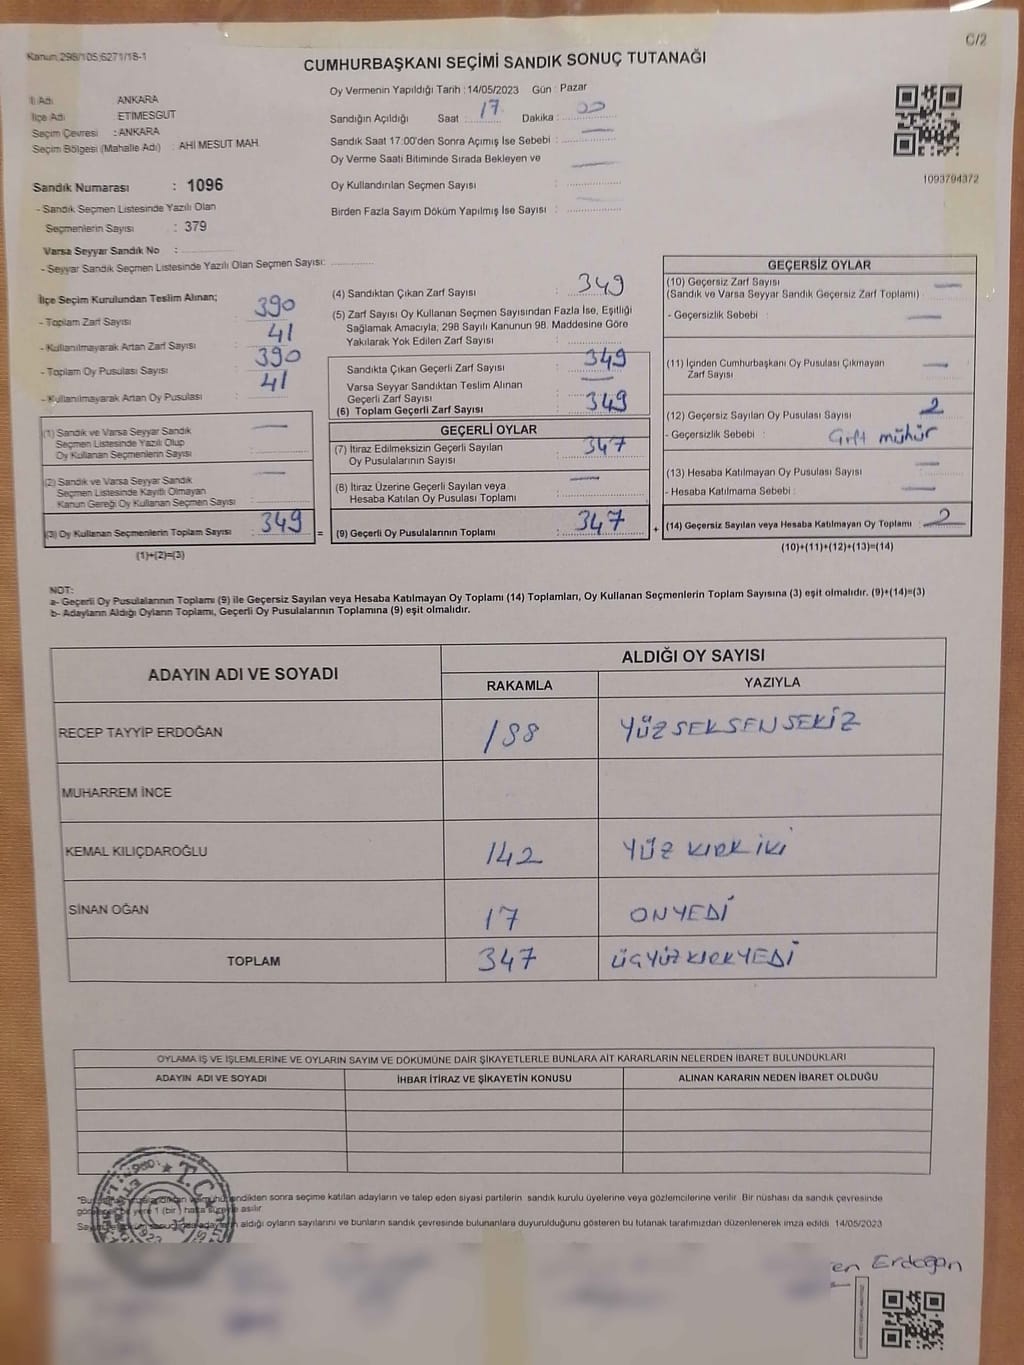 C/2
Kanun:298/105;6271/18-1
CUMHURBAŞKANI SEÇİMİ SANDIK SONUÇ TUTANAĞI
İl Adı ANKARA
İlçe Adı ETİMESGUT
Seçim Çevresi : ANKARA
Seçim Bölgesi (Mahalle Adı) : AHİ MESUT MAH.
Sandık Numarası : 1096
- Sandık Seçmen Listesinde Yazılı Olan
Seçmenlerin Sayısı : 379
Varsa Seyyar Sandık No :
- Seyyar Sandık Seçmen Listesinde Yazılı Olan Seçmen Sayısı:
Oy Vermenin Yapıldığı Tarih : 14/05/2023 Gün : Pazar
Sandığın Açıldığı Saat : 17 Dakika : 00
Sandık Saat 17:00'den Sonra Açımış İse Sebebi : —
Oy Verme Saati Bitiminde Sırada Bekleyen ve
Oy Kullandırılan Seçmen Sayısı : —
Birden Fazla Sayım Döküm Yapılmış İse Sayısı : —
1093794372
İlçe Seçim Kurulundan Teslim Alınan;
- Toplam Zarf Sayısı : 390
- Kullanılmayarak Artan Zarf Sayısı : 41
- Toplam Oy Pusulası Sayısı : 390
- Kullanılmayarak Artan Oy Pusulası : 41
(1) Sandık ve Varsa Seyyar Sandık
Seçmen Listesinde Yazılı Olup
Oy Kullanan Seçmenlerin Sayısı : —
(2) Sandık ve Varsa Seyyar Sandık
Seçmen Listesinde Kayıtlı Olmayan
Kanun Gereği Oy Kullanan Seçmen Sayısı : —
(3) Oy Kullanan Seçmenlerin Toplam Sayısı : 349 =
(1)+(2)=(3)
(4) Sandıktan Çıkan Zarf Sayısı : 349
(5) Zarf Sayısı Oy Kullanan Seçmen Sayısından Fazla İse, Eşitliği
Sağlamak Amacıyla, 298 Sayılı Kanunun 98. Maddesine Göre
Yakılarak Yok Edilen Zarf Sayısı :
Sandıkta Çıkan Geçerli Zarf Sayısı : 349
Varsa Seyyar Sandıktan Teslim Alınan
Geçerli Zarf Sayısı : —
(6) Toplam Geçerli Zarf Sayısı : 349
GEÇERLİ OYLAR
(7) İtiraz Edilmeksizin Geçerli Sayılan
Oy Pusulalarının Sayısı : 347
(8) İtiraz Üzerine Geçerli Sayılan veya
Hesaba Katılan Oy Pusulası Toplamı : —
(9) Geçerli Oy Pusulalarının Toplamı : 347 +
GEÇERSİZ OYLAR
(10) Geçersiz Zarf Sayısı : —
(Sandık ve Varsa Seyyar Sandık Geçersiz Zarf Toplamı)
- Geçersizlik Sebebi : —
(11) İçinden Cumhurbaşkanı Oy Pusulası Çıkmayan
Zarf Sayısı : —
(12) Geçersiz Sayılan Oy Pusulası Sayısı : 2
- Geçersizlik Sebebi : Çift mühür
(13) Hesaba Katılmayan Oy Pusulası Sayısı : —
- Hesaba Katılmama Sebebi : —
(14) Geçersiz Sayılan veya Hesaba Katılmayan Oy Toplamı : 2
(10)+(11)+(12)+(13)=(14)
NOT:
a- Geçerli Oy Pusulasının Toplamı (9) ile Geçersiz Sayılan veya Hesaba Katılmayan Oy Toplamı (14) Toplamları, Oy Kullanan Seçmenlerin Toplam Sayısına (3) eşit olmalıdır. (9)+(14)=(3)
b- Adayların Aldığı Oyların Toplamı, Geçerli Oy Pusulalarının Toplamına (9) eşit olmalıdır.
ADAYIN ADI VE SOYADI ALDIĞI OY SAYISI
RAKAMLA YAZIYLA
RECEP TAYYİP ERDOĞAN 188 YÜZSEKSENSEKİZ
MUHARREM İNCE
KEMAL KILIÇDAROĞLU 142 YÜZ KIRK İKİ
SİNAN OĞAN 17 ONYEDİ
TOPLAM 347 ÜÇYÜZKIRKYEDİ
OYLAMA İŞ VE İŞLEMLERİNE VE OYLARIN SAYIM VE DÖKÜMÜNE DAİR ŞİKAYETLERLE BUNLARA AİT KARARLARIN NELERDEN İBARET BULUNDUKLARI
ADAYIN ADI VE SOYADI İHBAR İTİRAZ VE ŞİKAYETİN KONUSU ALINAN KARARIN NEDEN İBARET OLDUĞU
sonra seçime katılan adayların ve talep eden siyasi partilerin sandık kurulu üyelerine veya gözlemcilerine verilir. Bir nüshası da sandık çevresinde
yere 1 (bir) hafta süreyle asılır.
aldığı oyların sayılarını ve bunların sandık çevresinde bulunanlara duyurulduğunu gösteren bu tutanak tarafımızdan düzenlenerek imza edildi. 14/05/2023
T.C.
en Erdoğan